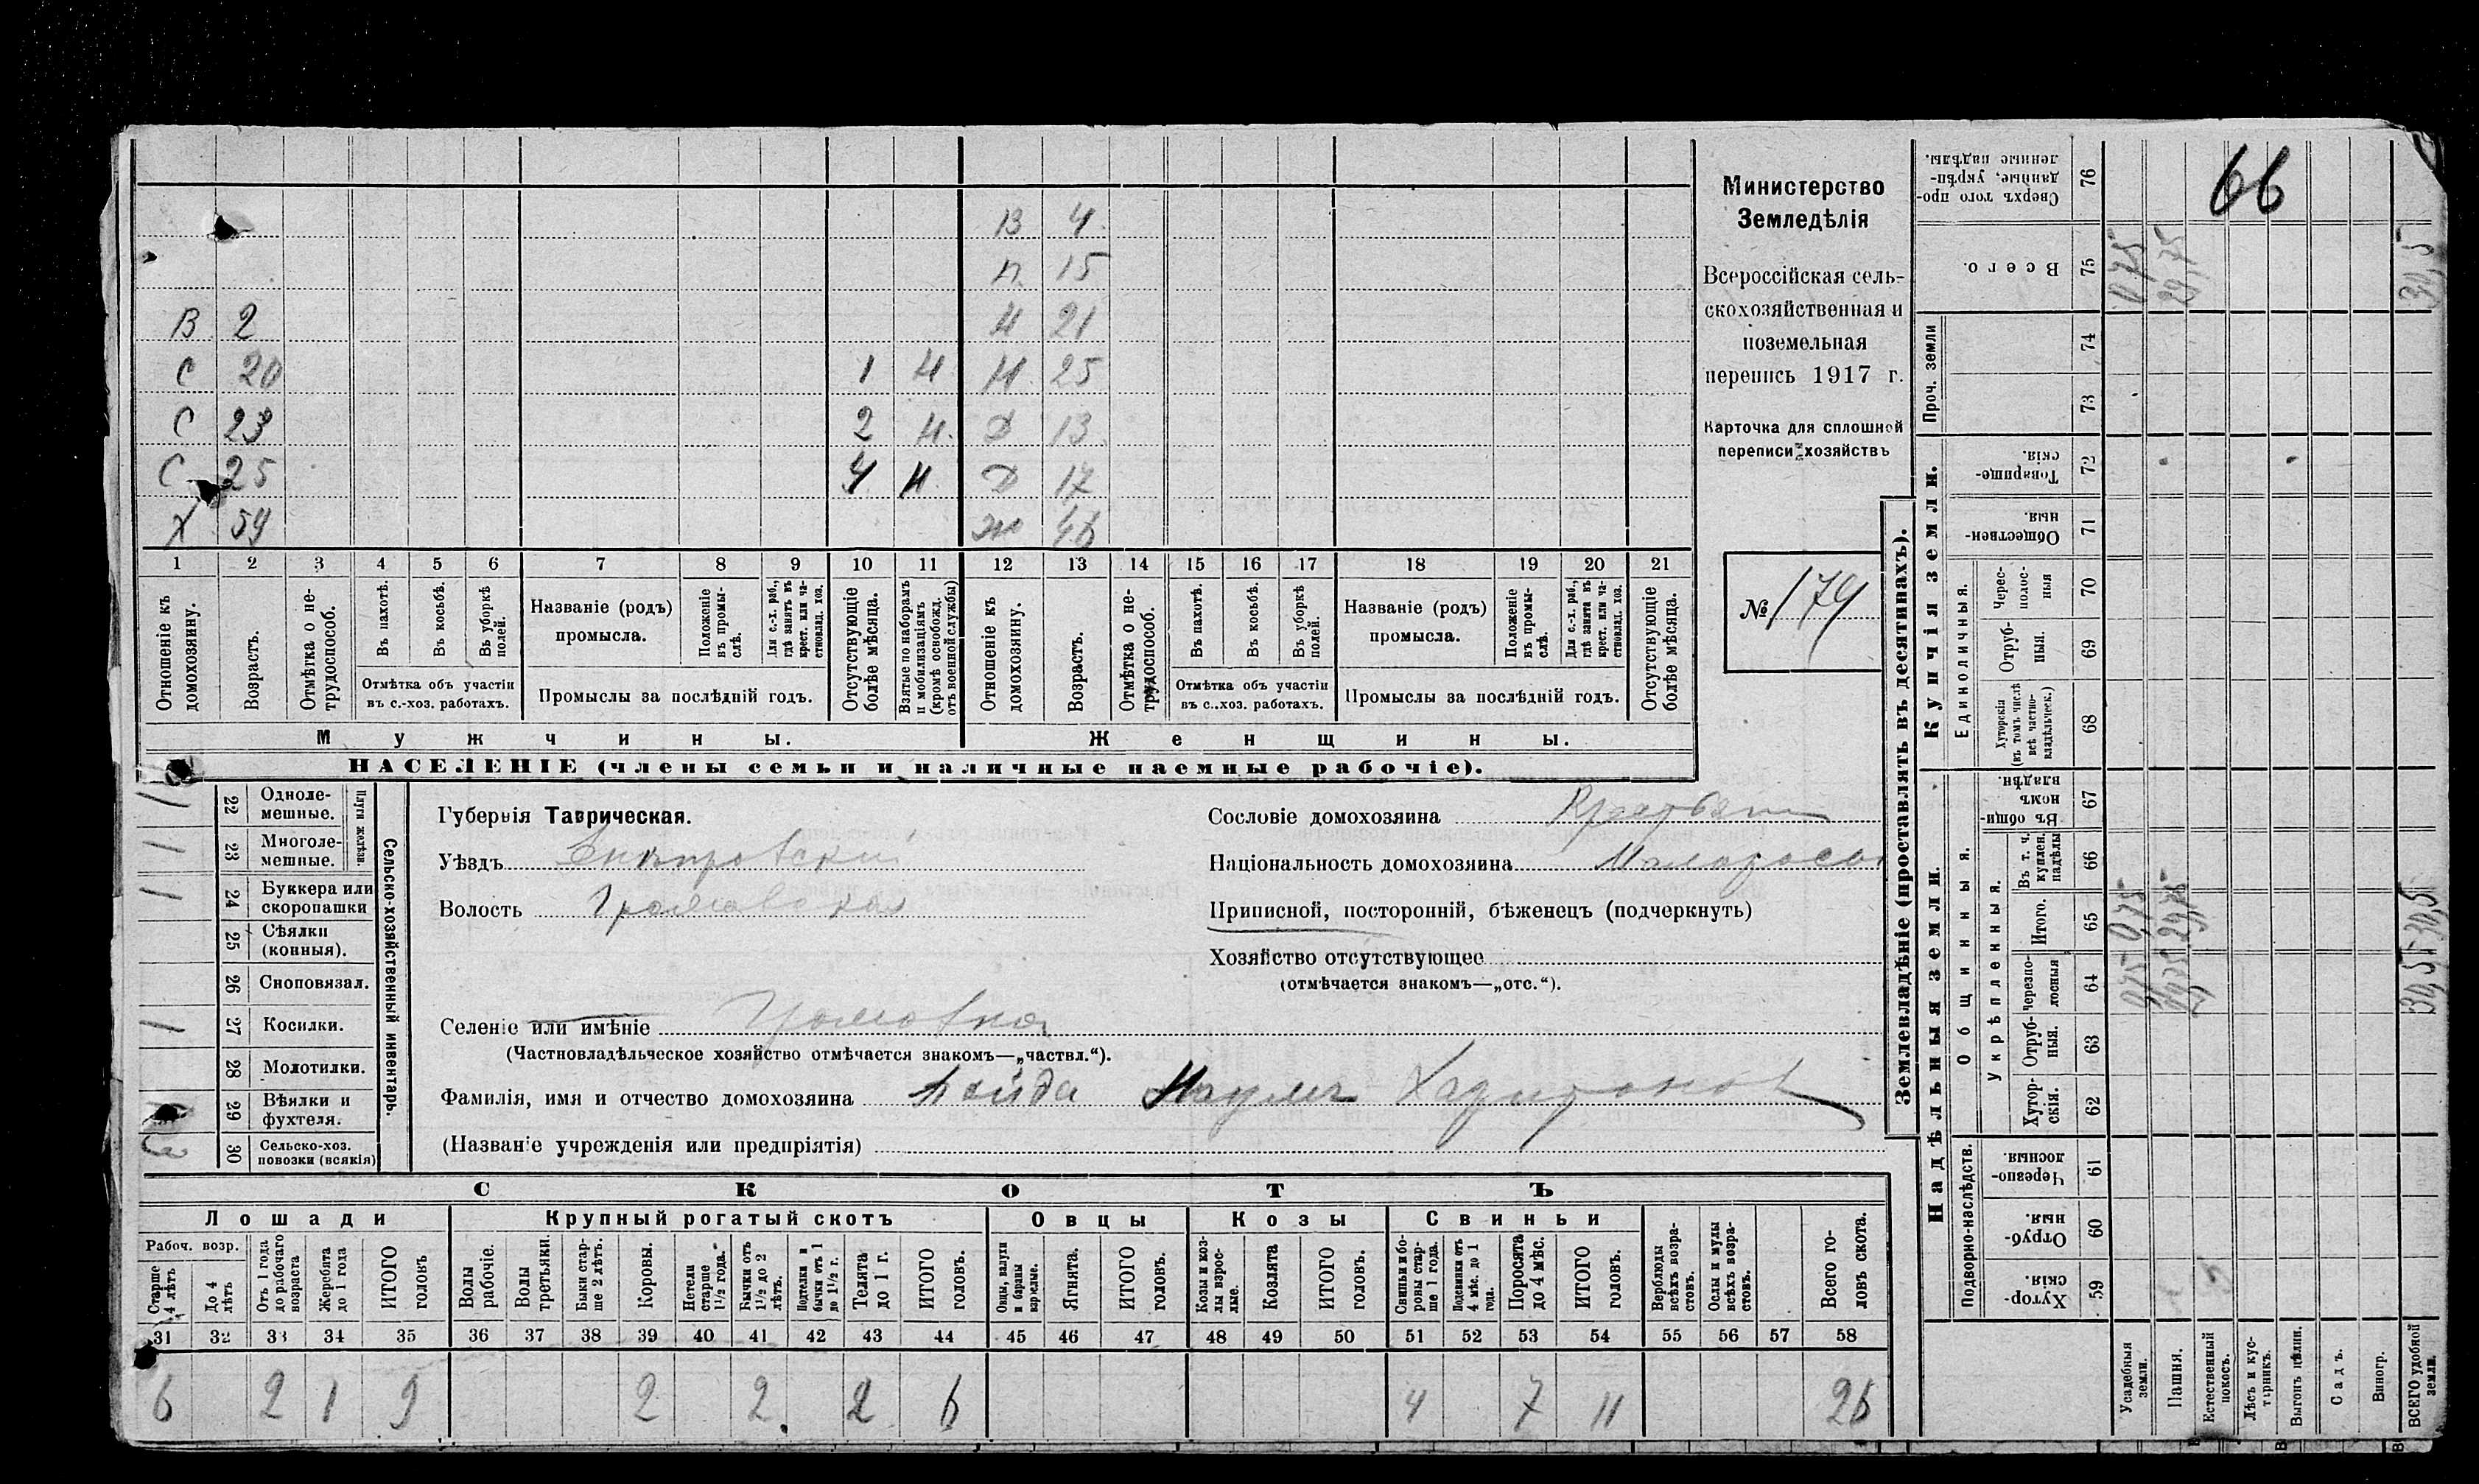 66
Министерство
Земледѣлія
Всероссійская сель-
скохозяйственная и
поземельная
перепись 1917 г.
Карточка для сплошной
переписи хозяйствъ
№ 179
В 4
П 15
В 2 Н 21
С 20 1 Н Н 25
С 23 2 Н. Д 13
С 25 4 Н. Д 17
Х 59 Ж 46
1 2 3 4 5 6 7 8 9 10 11 12 13 14 15 16 17 18 19 20 21
Отношеніе къ домохозяину.
Возрастъ.
Отмѣтка о не-трудоспособ.
Въ пахотѣ.
Въ косьбѣ.
Въ уборкѣ полей.
Отмѣтка объ участіи
въ с.-хоз. работахъ.
Названіе (родъ)
промысла.
Положеніе въ промы-слѣ.
Для с.-х. раб., гдѣ занятъ въ крест. или ча-стновлад. хоз.
Промыслы за послѣдній годъ.
Отсутствующіе болѣе мѣсяца.
Взятые по наборамъ и мобилизаціямъ (кромѣ освобожд. отъ военной службы)
Отношеніе къ домохозяину.
Возрастъ.
Отмѣтка о не-трудоспособ.
Въ пахотѣ.
Въ косьбѣ.
Въ уборкѣ полей.
Отмѣтка объ участіи
въ с..хоз. работахъ.
Названіе (родъ)
промысла.
Положеніе въ промы-слѣ.
Для с.-х. раб., гдѣ занята въ крест. или ча-стновлад. хоз.
Промыслы за послѣдній годъ.
Отсутствующіе болѣе мѣсяца.
Мужчины. Женщины.
НАСЕЛЕНІЕ (члены семьи и наличные наемные рабочіе).
Сельско-хозяйственный инвентарь.
Плуги желѣзн.
1 22 Одноле-мешные.
1 23 Многоле-мешные.
1 24 Буккера или скоропашки
25 Сѣялки (конныя).
26 Сноповязал.
1 27 Косилки.
28 Молотилки.
29 Вѣялки и фухтеля.
30 Сельско-хоз. повозки (всякія)
Губернія Таврическая.
Уѣздъ Днѣпровскій
Волость Громовская
Селеніе или имѣніе Громовка
(Частновладѣльческое хозяйство отмѣчается знакомъ—„частвл.“).
Фамилія, имя и отчество домохозяина Наумъ Харитонов
(Названіе учрежденія или предпріятія)
Сословіе домохозяина Крестьян
Національность домохозяина Малоросс
Приписной, посторонній, бѣженецъ (подчеркнуть)
Хозяйство отсутствующее
(отмѣчается знакомъ—„отс.“).
СКОТЪ
Лошади Крупный рогатый скотъ Овцы Козы Свиньи
Рабоч. возр.
Старше 4 лѣтъ
До 4 лѣтъ
Отъ 1 года до рабочаго возраста
Жеребята до 1 года
ИТОГО головъ
Волы рабочіе.
Волы третьяки.
Быки стар-ше 2 лѣтъ.
Коровы.
Нетели старше 1½ года.
Бычки отъ 1½ до 2 лѣтъ.
Подтелки и бычки отъ 1 до 1½ г.
Телята до 1 г.
ИТОГО головъ.
Овцы, валухи и бараны взрослые.
Ягнята.
ИТОГО головъ.
Козы и коз-лы взрос-лые.
Козлята
ИТОГО головъ.
Свиньи и бо-ровы стар-ше 1 года.
Подсвинки отъ 4 мѣс. до 1 года.
Поросята до 4 мѣс.
ИТОГО головъ.
Верблюды всѣхъ возра-стовъ.
Ослы и мулы всѣхъ возра-стовъ.
Всего го-ловъ скота.
31 32 33 34 35 36 37 38 39 40 41 42 43 44 45 46 47 48 49 50 51 52 53 54 55 56 57 58
6 2 1 9 2 2. 2 6 4 7 11 26
Землевладѣніе (проставлять въ десятинахъ).
Надѣльныя земли. Купчія земли.
Подворно-наслѣдств. Общинныя. Единоличныя. Проч. земли
Укрѣпленныя.
Хутор-скія. 59
Отруб-ныя. 60
Черезпо-лосныя 61
Хутор-скія. 62
Отруб-ныя. 63
Черезпо-лосныя 64
Итого. 65
Въ т. ч. куплен. надѣлы 66
Въ общин-номъ владѣн. 67
Хуторскія (въ томъ числѣ всѣ частно-владѣльческ.) 68
Отруб-ныя. 69
Черес-полос-ныя 70
Обществен-ныя. 71
Товарище-скія. 72
73
74
Всего. 75
Сверхъ того про-данные, укрѣп-ленные надѣлы. 76
Усадебныя земли. 0,75 0,75 0,75
Пашня. 29,75 29,75 29,75
Естественный покосъ.
Лѣсъ и кус-тарникъ.
Выгонъ цѣлин.
Садъ.
Виногр.
ВСЕГО удобной земли. 30,5 30,5 30,5